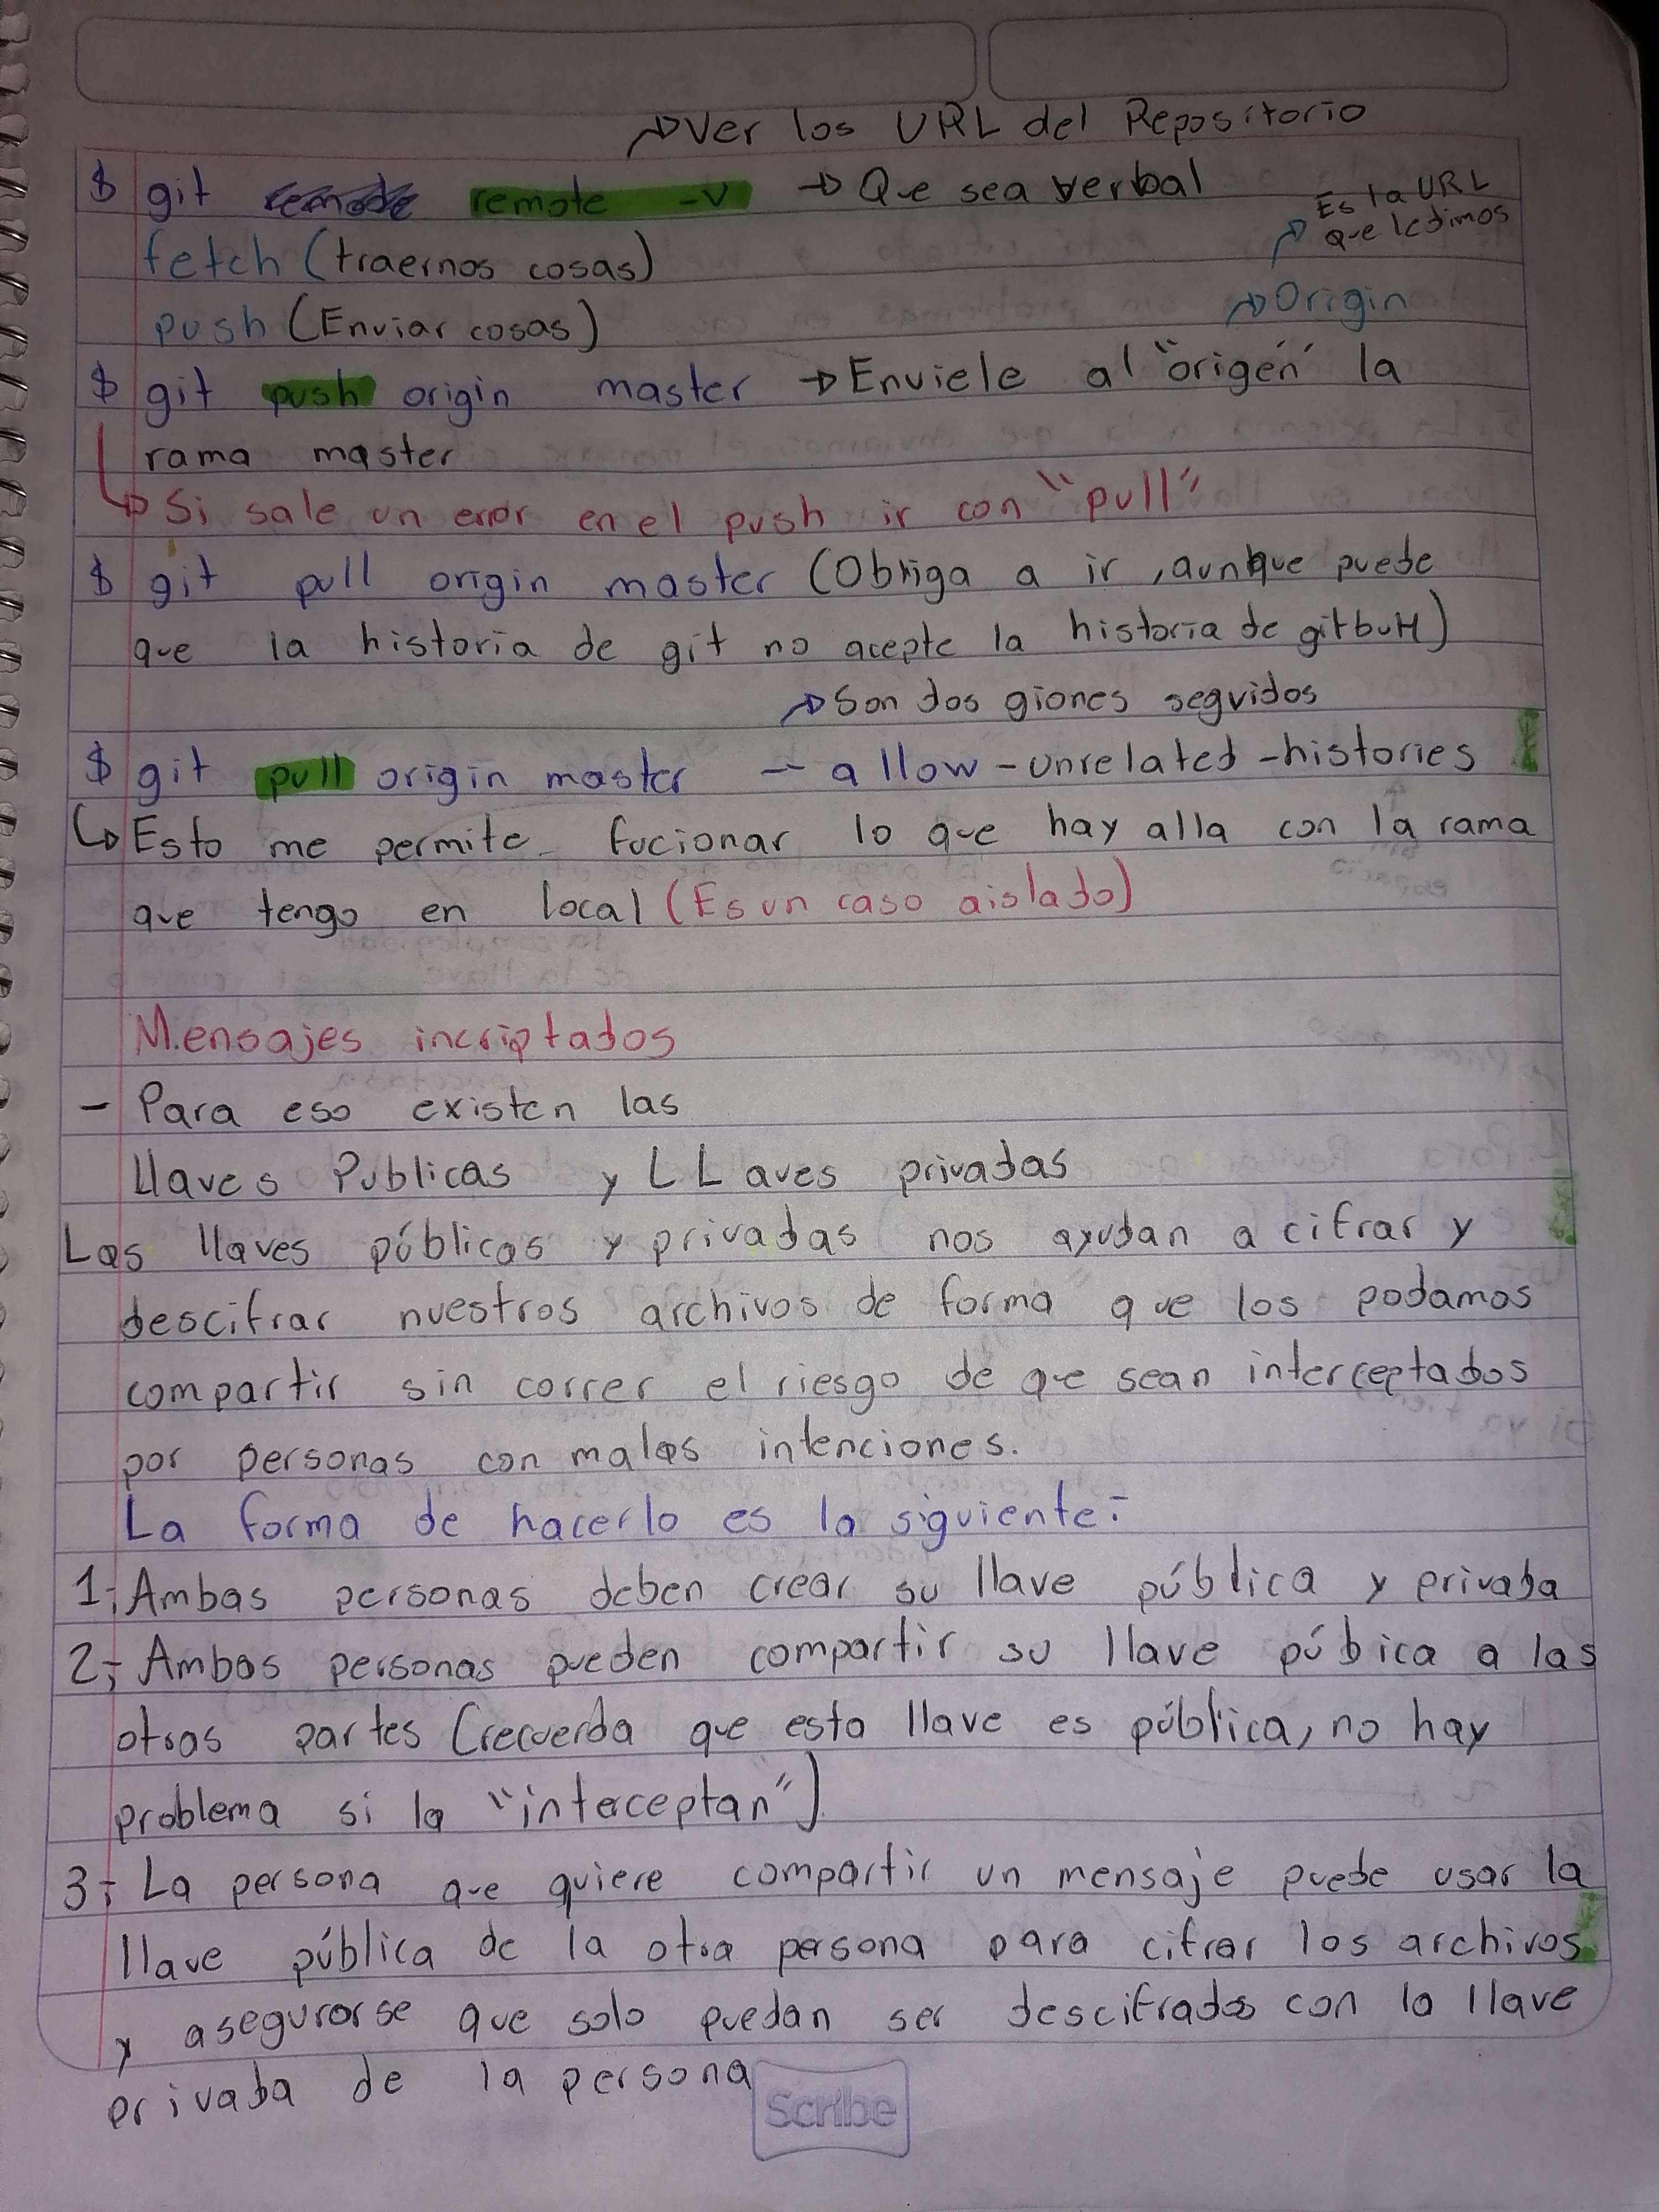 → Ver los URL del Repositorio
$ git remote -v → Que sea verbal
Es la URL
que le dimos
fetch (traernos cosas)
→ Origin
push (Enviar cosas)
$ git push origin master → Enviele al "origen" la
rama master
↳ Si sale un error en el push ir con "pull"
$ git pull origin master (Obliga a ir, aunque puede
que la historia de git no acepte la historia de gitbuH)
→ Son dos giones seguidos
$ git pull origin master -- allow-unrelated-histories
↳ Esto me permite fucionar lo que hay alla con la rama
que tengo en local (Es un caso aislado)
Mensajes incriptados
- Para eso existen las
llaves Publicas y LLaves privadas
Las llaves públicas y privadas nos ayudan a cifrar y
descifrar nuestros archivos de forma que los podamos
compartir sin correr el riesgo de que sean interceptados
por personas con malas intenciones.
La forma de hacerlo es la siguiente:
1.- Ambas personas deben crear su llave pública y privada
2.- Ambas personas pueden compartir su llave púbica a las
otras partes (recuerda que esta llave es pública, no hay
problema si la "interceptan")
3.- La persona que quiere compartir un mensaje puede usar la
llave pública de la otra persona para cifrar los archivos
y asegurarse que solo puedan ser descifrados con la llave
privada de la persona
Scribe